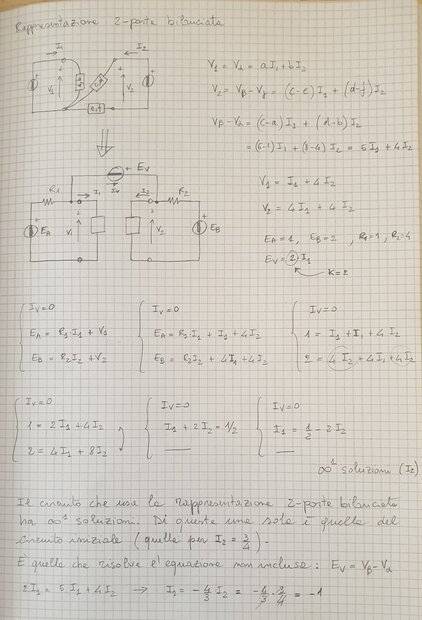 Rappresentazione 2-porte bilanciata
I1 I2
V1 V2
V1 = Vα = aI1 + bI2
V2 = Vβ - Vγ = (c-e)I1 + (d-f)I2
Vβ - Vα = (c-a)I1 + (d-b)I2
= 5I1 + 4I2
+ EV
R1 I1 IV I2 R2
EA V1 V2 EB
V1 = I1 + 4I2
V2 = 4I1 + 4I2
EA = 1, EB = 2, R1 = 1, R2 = 4
EV = 2I1
K = 2
IV = 0
EA = R1I1 + V1
EB = R2I2 + V2
IV = 0
EA = R1I1 + I1 + 4I2
EB = R2I2 + 4I1 + 4I2
IV = 0
1 = I1 + I1 + 4I2
2 = 4I2 + 4I1 + 4I2
IV = 0
1 = 2I1 + 4I2
2 = 4I1 + 8I2
IV = 0
I1 + 2I2 = 1/2
IV = 0
I1 = 1/2 - 2I2
∞¹ soluzioni (I2)
Il circuito che usa la rappresentazione 2-porte bilanciata
ha ∞¹ soluzioni. Di queste una sola è quella del
circuito iniziale (quella per I2 = 3/4).
È quella che risolve l'equazione non inclusa: EV = Vβ - Vα
2I1 = 5I1 + 4I2 → I1 = -4/3 I2 = -4/3 · 3/4 = -1